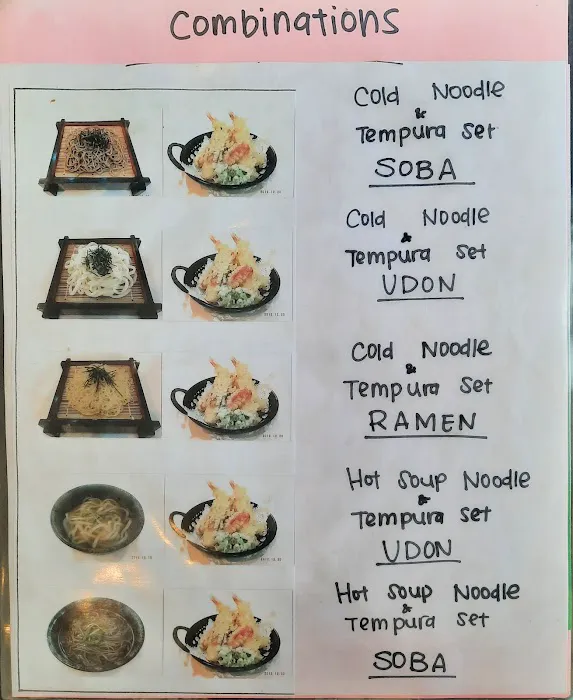 Combinations
Cold Noodle
&
Tempura Set
SOBA
Cold Noodle
&
Tempura Set
UDON
Cold Noodle
&
Tempura Set
RAMEN
Hot Soup Noodle
&
Tempura Set
UDON
Hot Soup Noodle
&
Tempura Set
SOBA